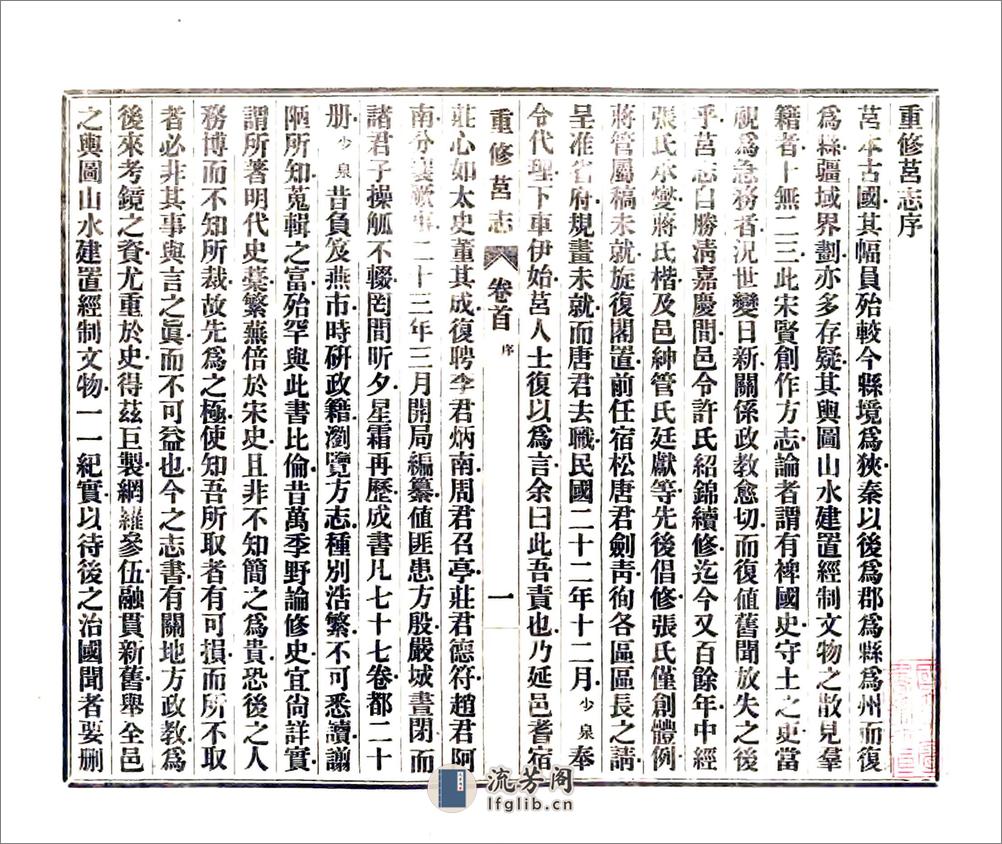 重修莒志序
莒本古國其幅員殆較今縣境為狹秦以後為郡為縣為州而復
為縣疆域界劃亦多存疑其輿圖山水建置經制文物之散見羣
籍者十無二三此宋賢創作方志論者謂有裨國史守土之吏當
視為急務者況世變日新關係政教愈切而復值舊聞放失之後
乎莒志自勝清嘉慶間邑令許氏紹錦續修迄今又百餘年中經
張氏承燮蔣氏楷及邑紳管氏廷獻等先後倡修張氏僅創體例
蔣管屬稿未就旋復閣置前任宿松唐君劍靑徇各區區長之請
呈准省府規畫未就而唐君去職民國二十二年十二月少泉奉
令代理下車伊始莒人士復以為言余曰此吾責也乃延邑耆宿
重修莒志 卷首 序 一
莊心如太史董其成復聘李君炳南周君召亭莊君德符趙君阿
南分襄厥事二十三年三月開局編纂值匪患方殷嚴城晝閉而
諸君子操觚不輟罔間昕夕星霜再歷成書凡七十七卷都二十
册少泉昔負笈燕市時研政籍瀏覽方志種別浩繁不可悉讀謭
陋所知蒐輯之富殆罕與此書比倫昔萬季野論修史宜尙詳實
謂所著明代史藁繁蕪倍於宋史且非不知簡之為貴恐後之人
務博而不知所裁故先為之極使知吾所取者有可損而所不取
者必非其事與言之眞而不可益也今之志書有關地方政教為
後來考鏡之資尤重於史得茲巨製網羅參伍融貫新舊舉全邑
之輿圖山水建置經制文物一一紀實以待後之治國聞者要刪
流芳阁
lfglib.cn